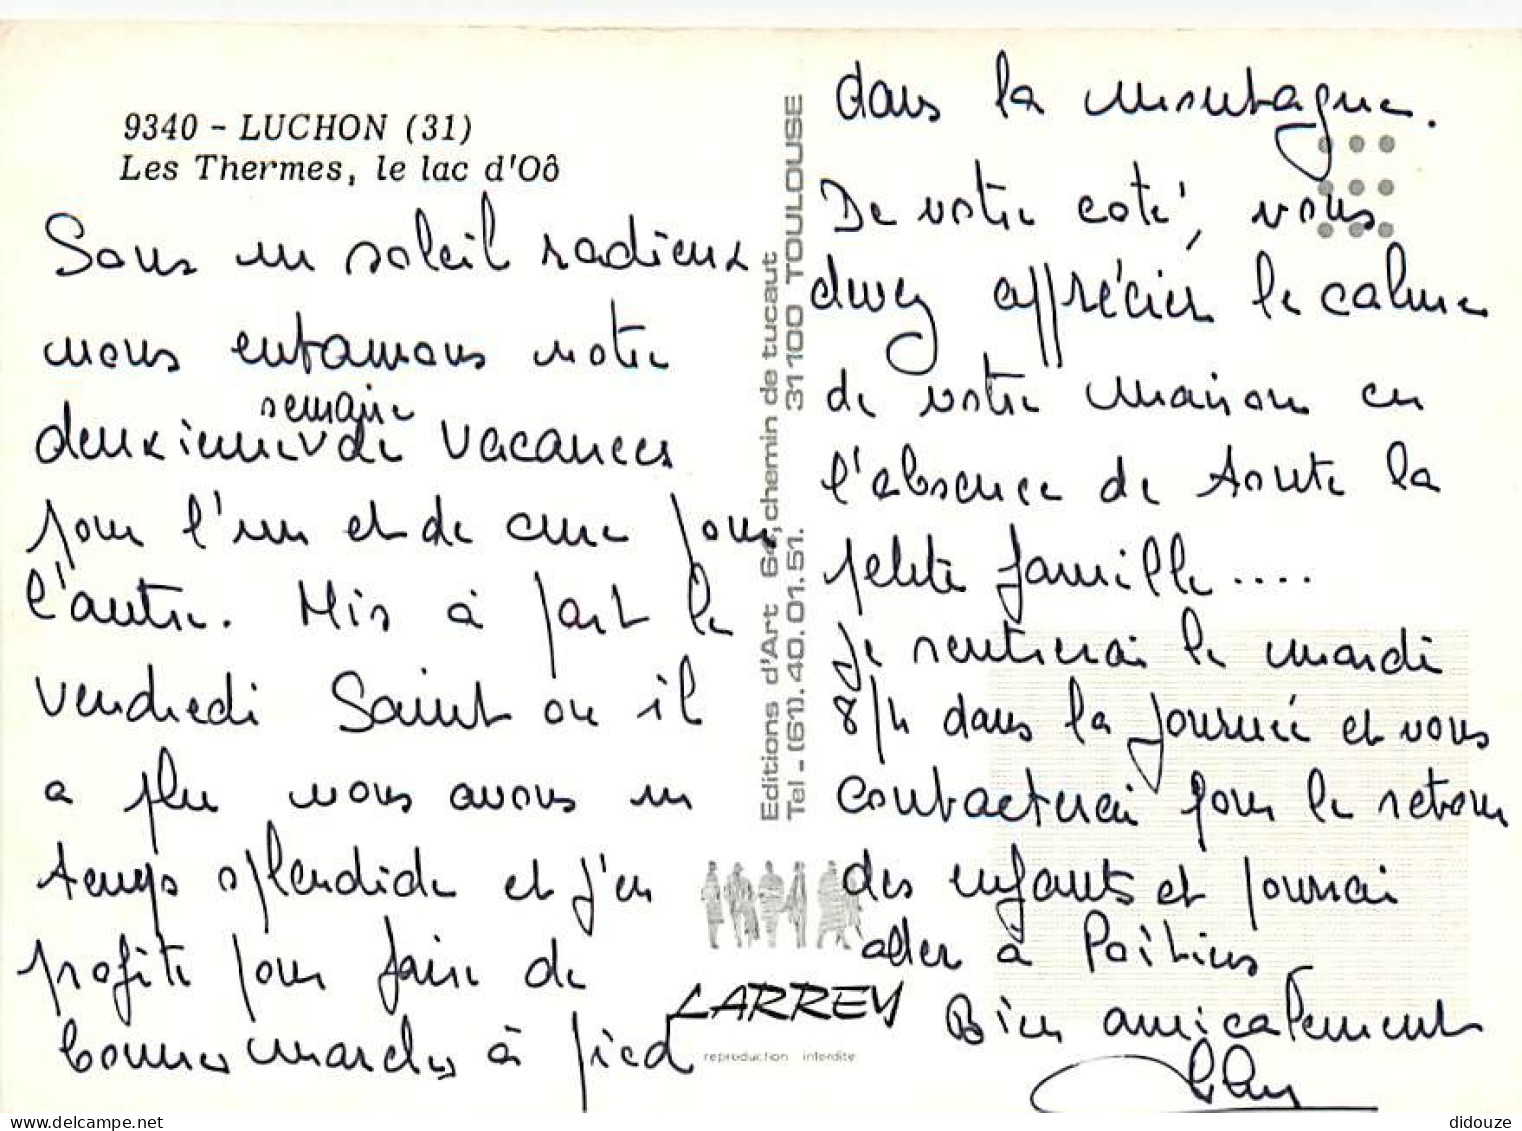 9340 - LUCHON (31)
Les Thermes, le lac d'Oô
Sous un soleil radieux
nous entamons notre
semaine
deuxième de vacances
pour l'un et de cure pour
l'autre. Mis à part le
vendredi Saint ou il
a plu nous avons un
temps splendide et j'en
profite pour faire de
bonnes marches à pied
Editions d'Art 64, chemin de tucaut
Tel - (61). 40.01.51. 31100 TOULOUSE
LARREY
reproduction interdite
dans la montagne.
De votre coté, vous
devez apprécier le calme
de votre maison en
l'absence de toute la
petite famille....
Je rentrerai le mardi
8/4 dans la journée et vous
contacterai pour le retour
des enfants et pourrai
aller à Poitiers
Bien amicalement
didouze